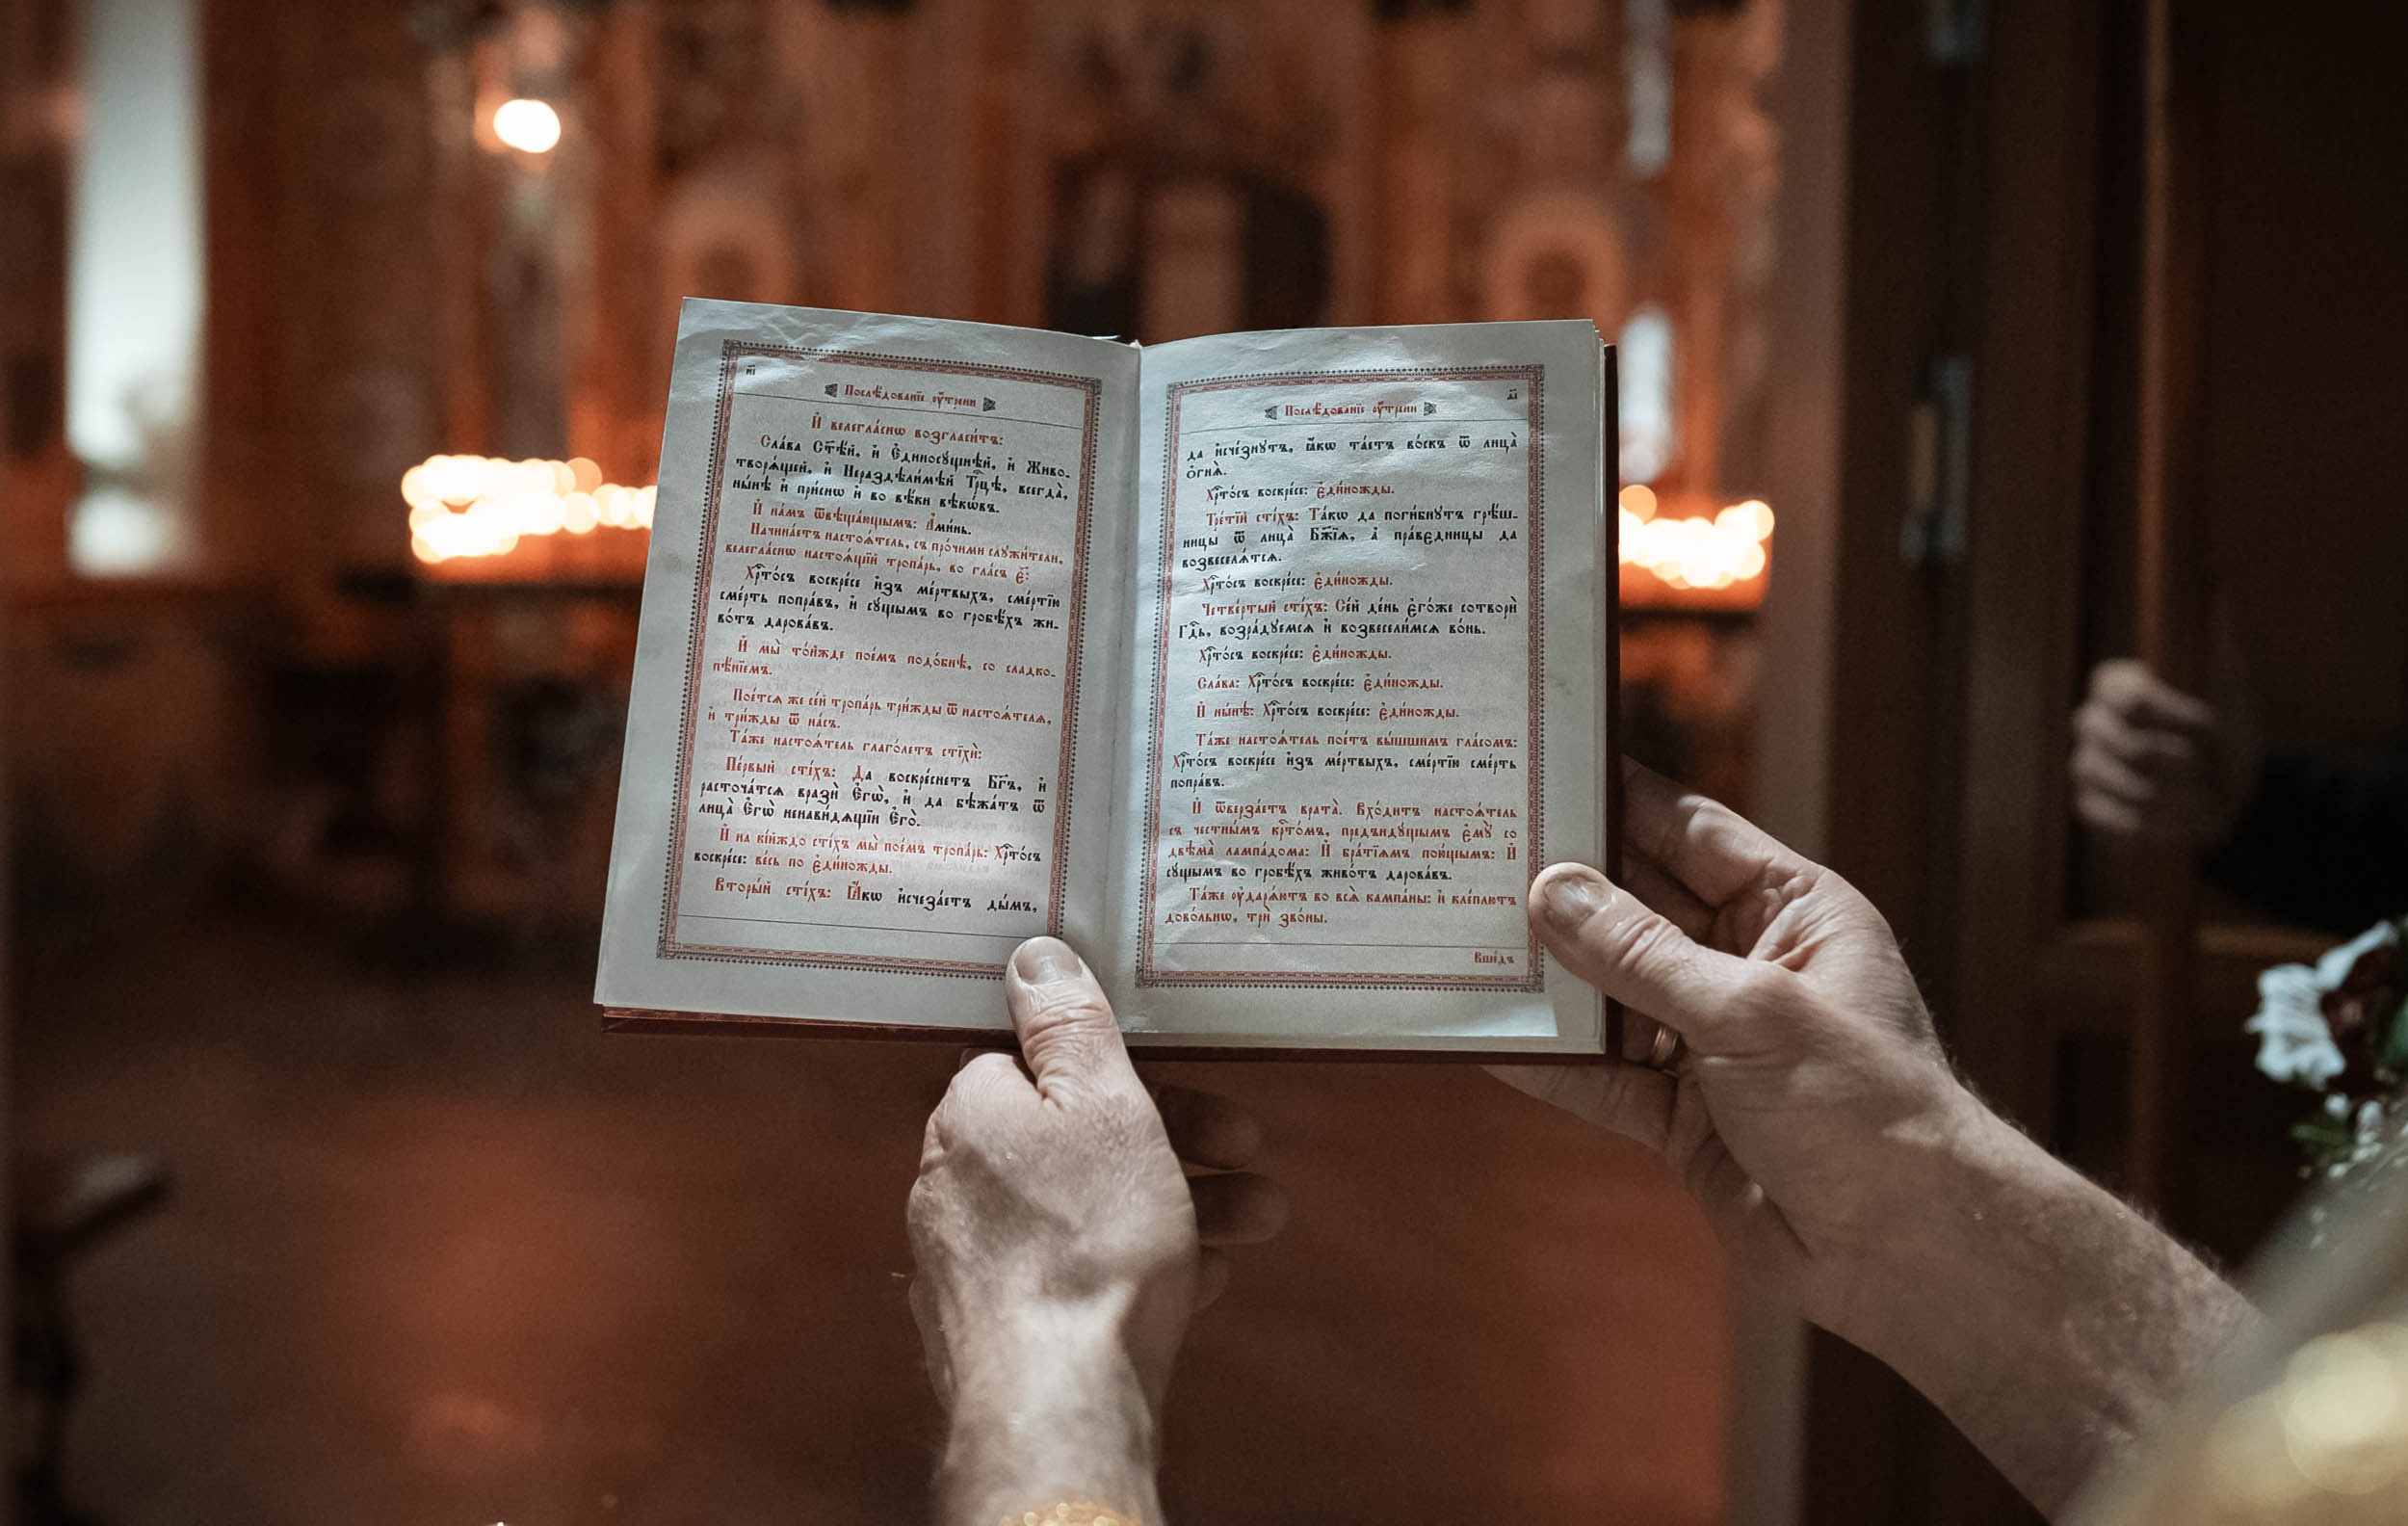 і҃
Послѣ́дованїе ᲂу҆́трени
И҆ велегла́снѡ возгласи́тъ:
Сла́ва Ст҃ѣ́й, и҆ Є҆диносꙋ́щнѣй, и҆ Живо-
творѧ́щей, и҆ Нераздѣли́мѣй Трⷪ҇цѣ, всегда̀,
ны́нѣ и҆ при́снѡ и҆ во вѣ́ки вѣкѡ́въ.
И҆ на́мъ ѿвѣща́ющымъ: А҆ми́нь.
Начина́етъ настоѧ́тель, съ про́чими слꙋжи́тели,
велегла́снѡ настоѧ́щїй тропа́рь, во гла́съ є҃:
Хрⷭ҇то́съ воскре́се и҆зъ ме́ртвыхъ, сме́ртїю
сме́рть попра́въ, и҆ сꙋ́щымъ во гробѣ́хъ жи-
во́тъ дарова́въ.
И҆ мы̀ то́йжде пое́мъ подо́бнѣ, со сладко-
пѣ́нїемъ.
Пое́тсѧ же се́й тропа́рь три́жды ѿ настоѧ́телѧ,
и҆ три́жды ѿ на́съ.
Та́же настоѧ́тель глаго́летъ стїхѝ:
Пе́рвый сті́хъ: Да воскре́снетъ Бг҃ъ, и҆
расточа́тсѧ вразѝ Є҆гѡ̀, и҆ да бѣжа́тъ ѿ
лица̀ Є҆гѡ̀ ненави́дѧщїи Є҆го̀.
И҆ на кі́йждо сті́хъ мы̀ пое́мъ тропа́рь: Хрⷭ҇то́съ
воскре́се: ве́сь по є҆ди́ножды.
Вторы́й сті́хъ: Ꙗ҆́кѡ и҆счеза́етъ ды́мъ,
а҃і
Послѣ́дованїе ᲂу҆́трени
да и҆сче́знꙋтъ, ꙗ҆́кѡ та́етъ во́скъ ѿ лица̀
ѻ҆гнѧ̀.
Хрⷭ҇то́съ воскре́се: є҆ди́ножды.
Тре́тїй сті́хъ: Та́кѡ да поги́бнꙋтъ грѣ̑ш-
ницы ѿ лица̀ Бж҃їѧ, а҆ пра́вєдницы да
возвеселѧ́тсѧ.
Хрⷭ҇то́съ воскре́се: є҆ди́ножды.
Четве́ртый сті́хъ: Се́й де́нь є҆го́же сотворѝ
Гдⷭ҇ь, возра́дꙋемсѧ и҆ возвесели́мсѧ во́нь.
Хрⷭ҇то́съ воскре́се: є҆ди́ножды.
Сла́ва: Хрⷭ҇то́съ воскре́се: є҆ди́ножды.
И҆ ны́нѣ: Хрⷭ҇то́съ воскре́се: є҆ди́ножды.
Та́же настоѧ́тель пое́тъ вы́шшимъ гла́сомъ:
Хрⷭ҇то́съ воскре́се и҆зъ ме́ртвыхъ, сме́ртїю сме́рть
попра́въ.
И҆ ѿверза́етъ врата̀. Вхо́дитъ настоѧ́тель
съ честны́мъ крⷭ҇то́мъ, предъидꙋ́щымъ є҆мꙋ̀ со
двѣма̀ лампа́дома: И҆ бра́тїѧмъ пою́щымъ: И҆
сꙋ́щымъ во гробѣ́хъ живо́тъ дарова́въ.
Та́же ᲂу҆дарѧ́ютъ во всѧ̑ кампа́ны: и҆ кле́плютъ
дово́льнѡ, трѝ зво́ны.
Вни́дъ